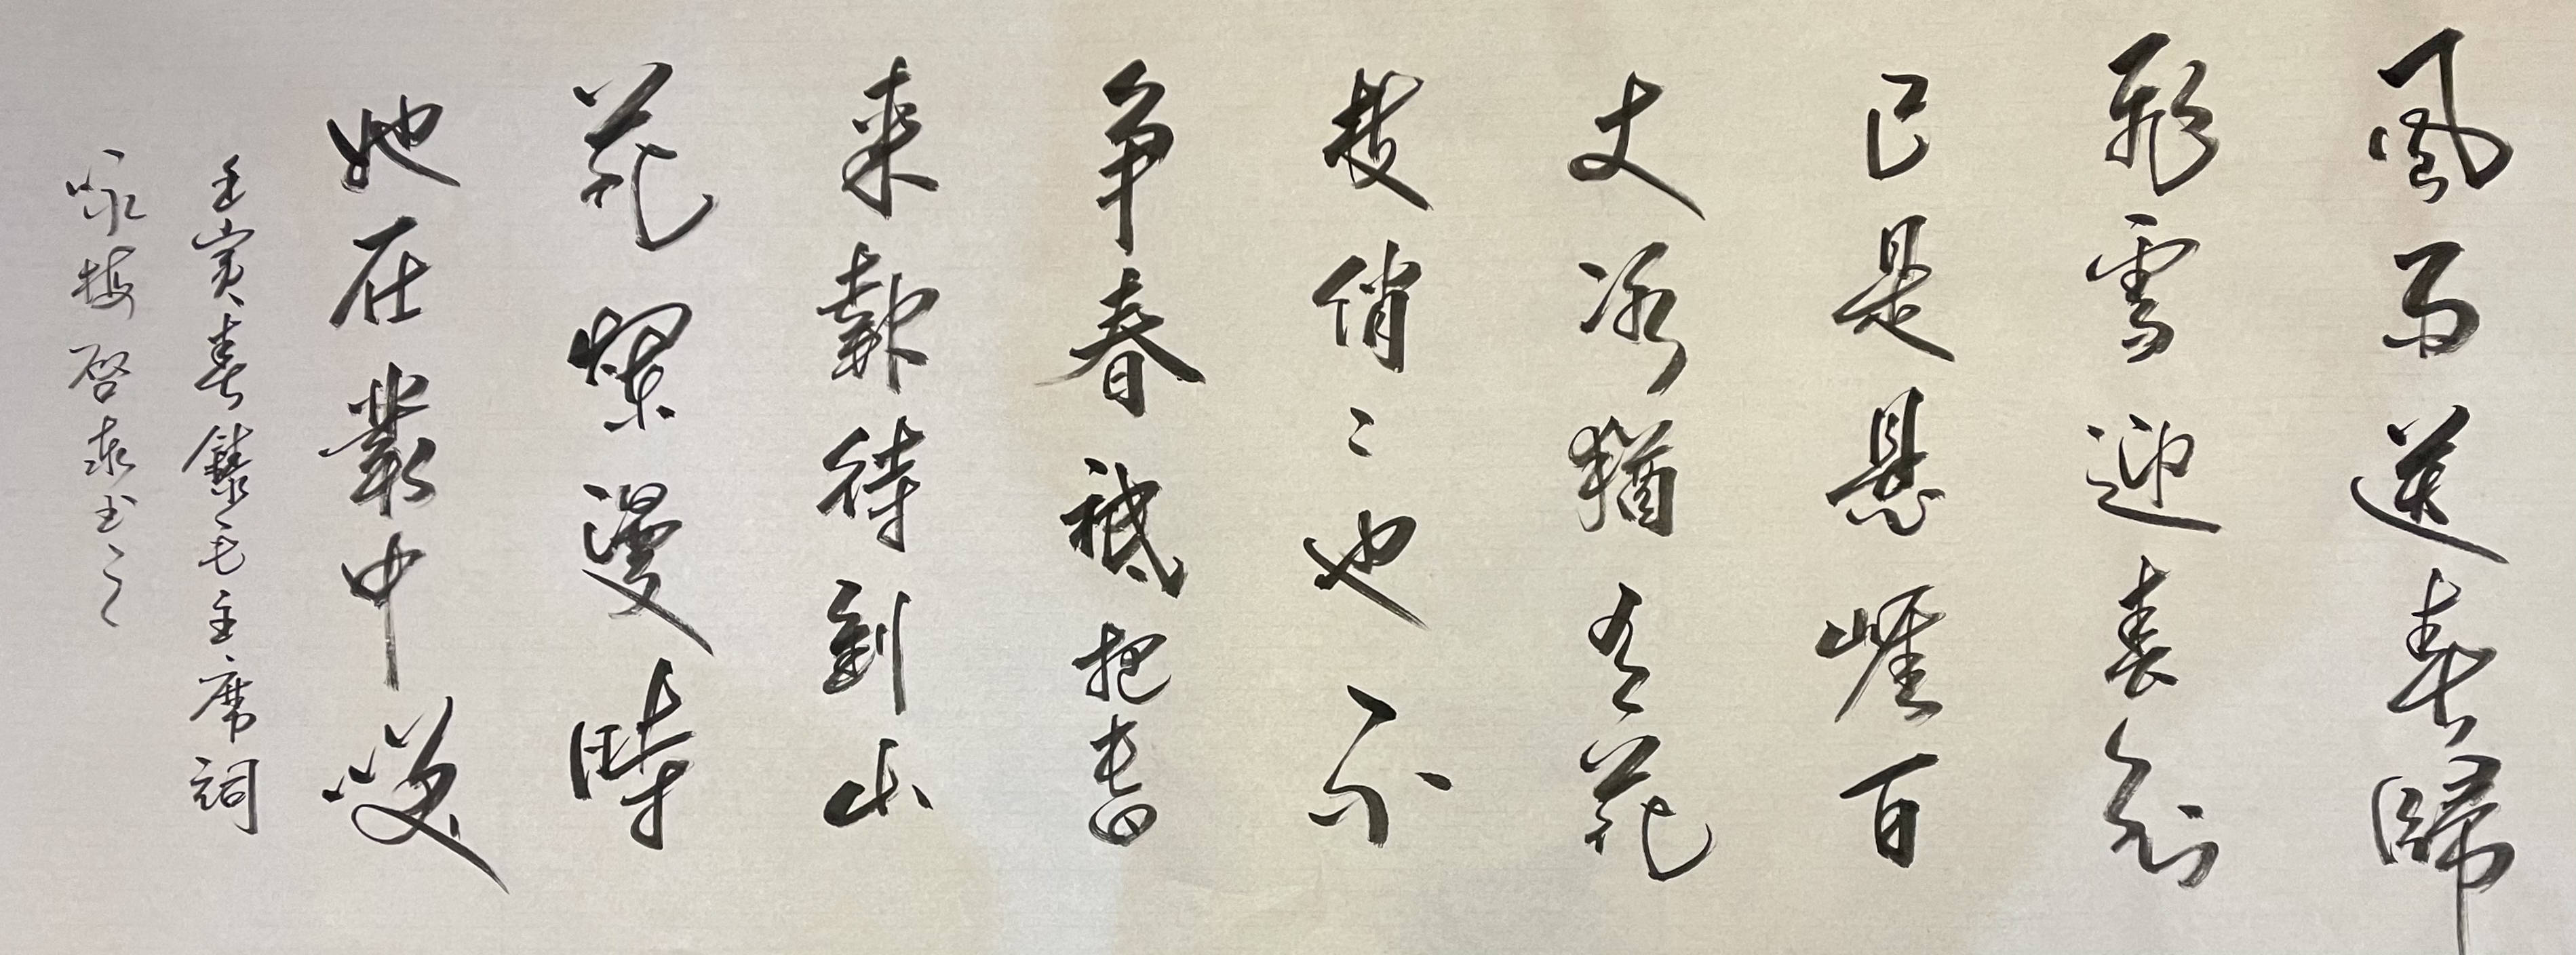 風雨送春歸
飛雪迎春到
已是悬崖百
丈冰猶有花
枝俏〻也不
争春祗把春
来報待到山
花爛漫時
她在叢中咲
壬寅春錄毛主席詞
咏梅 启泰书